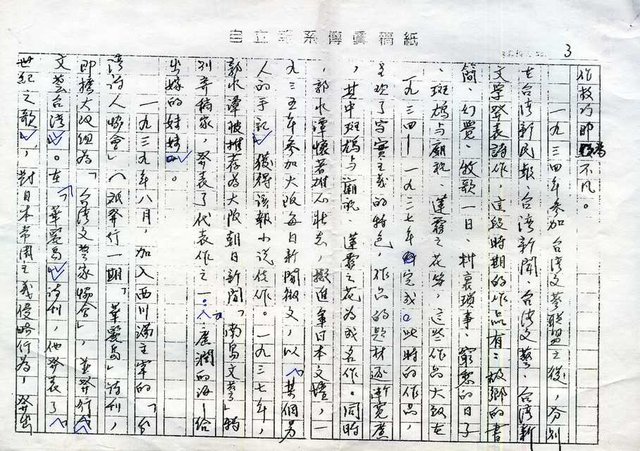 自立 系傳真稿紙
3
作技巧即 不凡。
一九三四年參加台灣文藝聯盟之後，分別
在台灣新民報、台灣新聞、台灣文藝、台灣新
文學發表詩作，這段時期的作品有：故鄉的書
簡、幻覺、牧歌一日、村裏瑣事、窮愁的日子
、斑鳩与廟祝、蓮霧之花等，這些作品大致在
一九三四—一九三七年完成。此時的作品，
呈現了写實主義的特色，作品的題材逐漸寬廣
，其中斑鳩与廟祝、蓮霧之花為成名作。同時
，郭水潭懷著雄心壯志，擬進軍日本文壇，一
九三五年參加大阪每日新聞徵文，以「某個男
人的手記」獲得該報小說佳作。一九三七年，
郭水潭被推荐為大阪朝日新聞「南島文藝」特
別寄稿家，發表了代表作之一：「廣闊的海—給
出嫁的妹妹」。
一九三九年八月，加入西川滿主宰的「台
灣詩人協會」（祇發行一期「華麗島」詩刊，
即擴大改組為「台灣文藝家協會」，並發行
文藝台灣」。在「華麗島」詩刊，他發表了「
世紀之歌」，對日本帝國主義侵略行為，發出